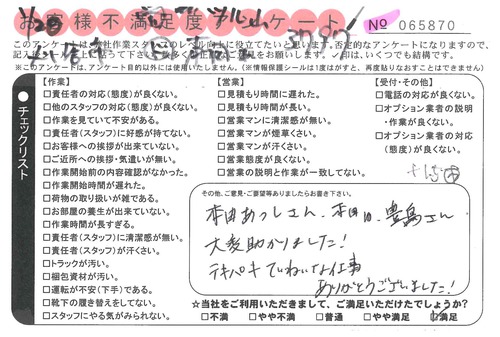 お客様不満足度アンケート!
No 065870
このアンケートは、弊社作業スタッフのレベル向上に役立てたいと思います。否定的なアンケートになりますので、
✓印は、いくつでも結構です。
(※このアンケートは、アンケート目的以外には使用いたしません。)(※情報保護シールは1度はがすと、再度貼りなおすことはできません)
チェックリスト
【作業】
□責任者の対応(態度)が良くない。
□他のスタッフの対応(態度)が良くない。
□作業を見ていて不安がある。
□責任者(スタッフ)に好感が持てない。
□お客様への挨拶が出来ていない。
□ご近所への挨拶・気遣いが無い。
□作業開始前の内容確認がなかった。
□作業開始時間が遅れた。
□荷物の取り扱いが雑である。
□お部屋の養生が出来ていない。
□作業時間が長すぎる。
□責任者(スタッフ)に清潔感が無い。
□責任者(スタッフ)が汗くさい。
□トラックが汚い。
□梱包資材が汚い。
□運転が不安(下手)である。
□靴下の履き替えをしてない。
□スタッフにやる気がみられない。
【営業】
□見積もり時間に遅れた。
□見積もり時間が長い。
□営業マンに清潔感が無い。
□営業マンが煙草くさい。
□営業マンが汗くさい。
□営業態度が良くない。
□営業の説明と作業が一致してない。
【受付・その他】
□電話の対応が良くない。
□オプション業者の説明
・作業が良くない。
□オプション業者の対応
(態度)が良くない。
その他、ご意見・ご要望等ありましたらお書き下さい。
本田あつしさん、本田、豊島さん
大変助かりました!
テキパキていねいな仕事
ありがとうございました!
☆当社をご利用いただきまして、ご満足いただけたでしょうか?
□不満 □やや不満 □普通 □やや満足 □満足